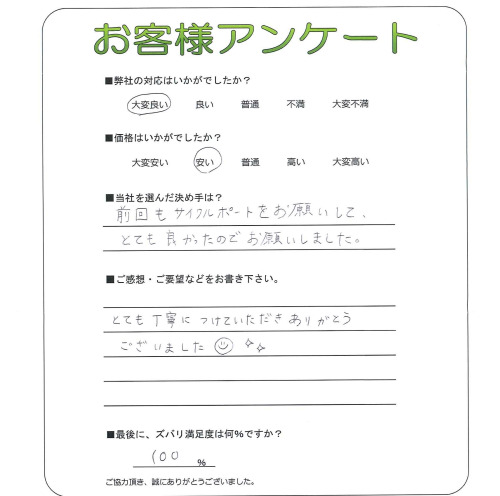 お客様アンケート
■弊社の対応はいかがでしたか？
大変良い 良い 普通 不満 大変不満
■価格はいかがでしたか？
大変安い 安い 普通 高い 大変高い
■当社を選んだ決め手は？
前回もサイクルポートをお願いして、
とても良かったのでお願いしました。
■ご感想・ご要望などをお書き下さい。
とても丁寧につけていただきありがとう
ございました
■最後に、ズバリ満足度は何％ですか？
100 %
ご協力頂き、誠にありがとうございました。